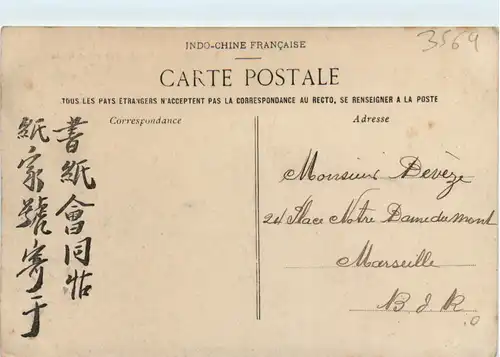 3564
INDO-CHINE FRANÇAISE
CARTE POSTALE
TOUS LES PAYS ÉTRANGERS N'ACCEPTENT PAS LA CORRESPONDANCE AU RECTO, SE RENSEIGNER A LA POSTE
Correspondance
Adresse
書紙會同帖
紙家號寄于
Monsieur Devèze
24 Place Notre Dame du mont
Marseille
B d R